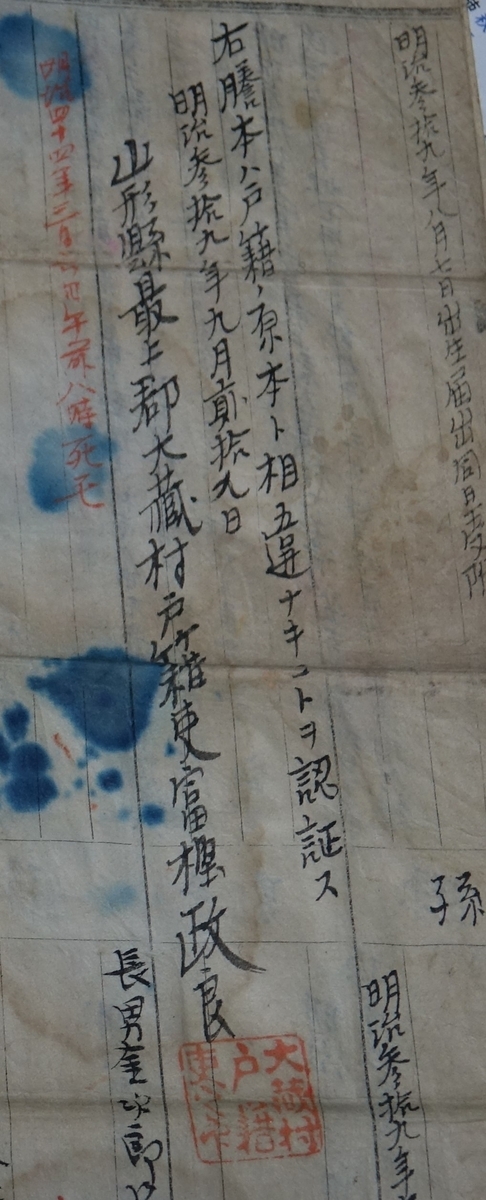 明治参拾九年八月七日出生届出同日受附
孫
明治参拾九年
右謄本ハ戸籍ノ原本ト相違ナキコトヲ認証ス
明治参拾九年九月貳拾九日
山形縣最上郡大蔵村戸籍吏富樫政良
大蔵村
戸籍
長男金次郎
明治四十四年三月 午前八時死亡